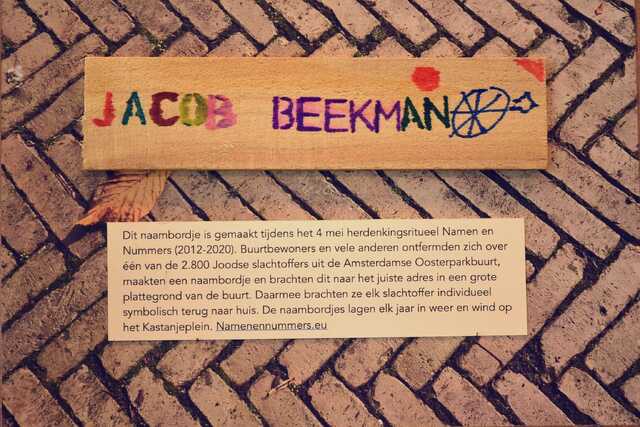 JACOB BEEKMAN
Dit naambordje is gemaakt tijdens het 4 mei herdenkingsritueel Namen en
Nummers (2012-2020). Buurtbewoners en vele anderen ontfermden zich over
één van de 2.800 Joodse slachtoffers uit de Amsterdamse Oosterparkbuurt,
maakten een naambordje en brachten dit naar het juiste adres in een grote
plattegrond van de buurt. Daarmee brachten ze elk slachtoffer individueel
symbolisch terug naar huis. De naambordjes lagen elk jaar in weer en wind op
het Kastanjeplein. Namenennummers.eu